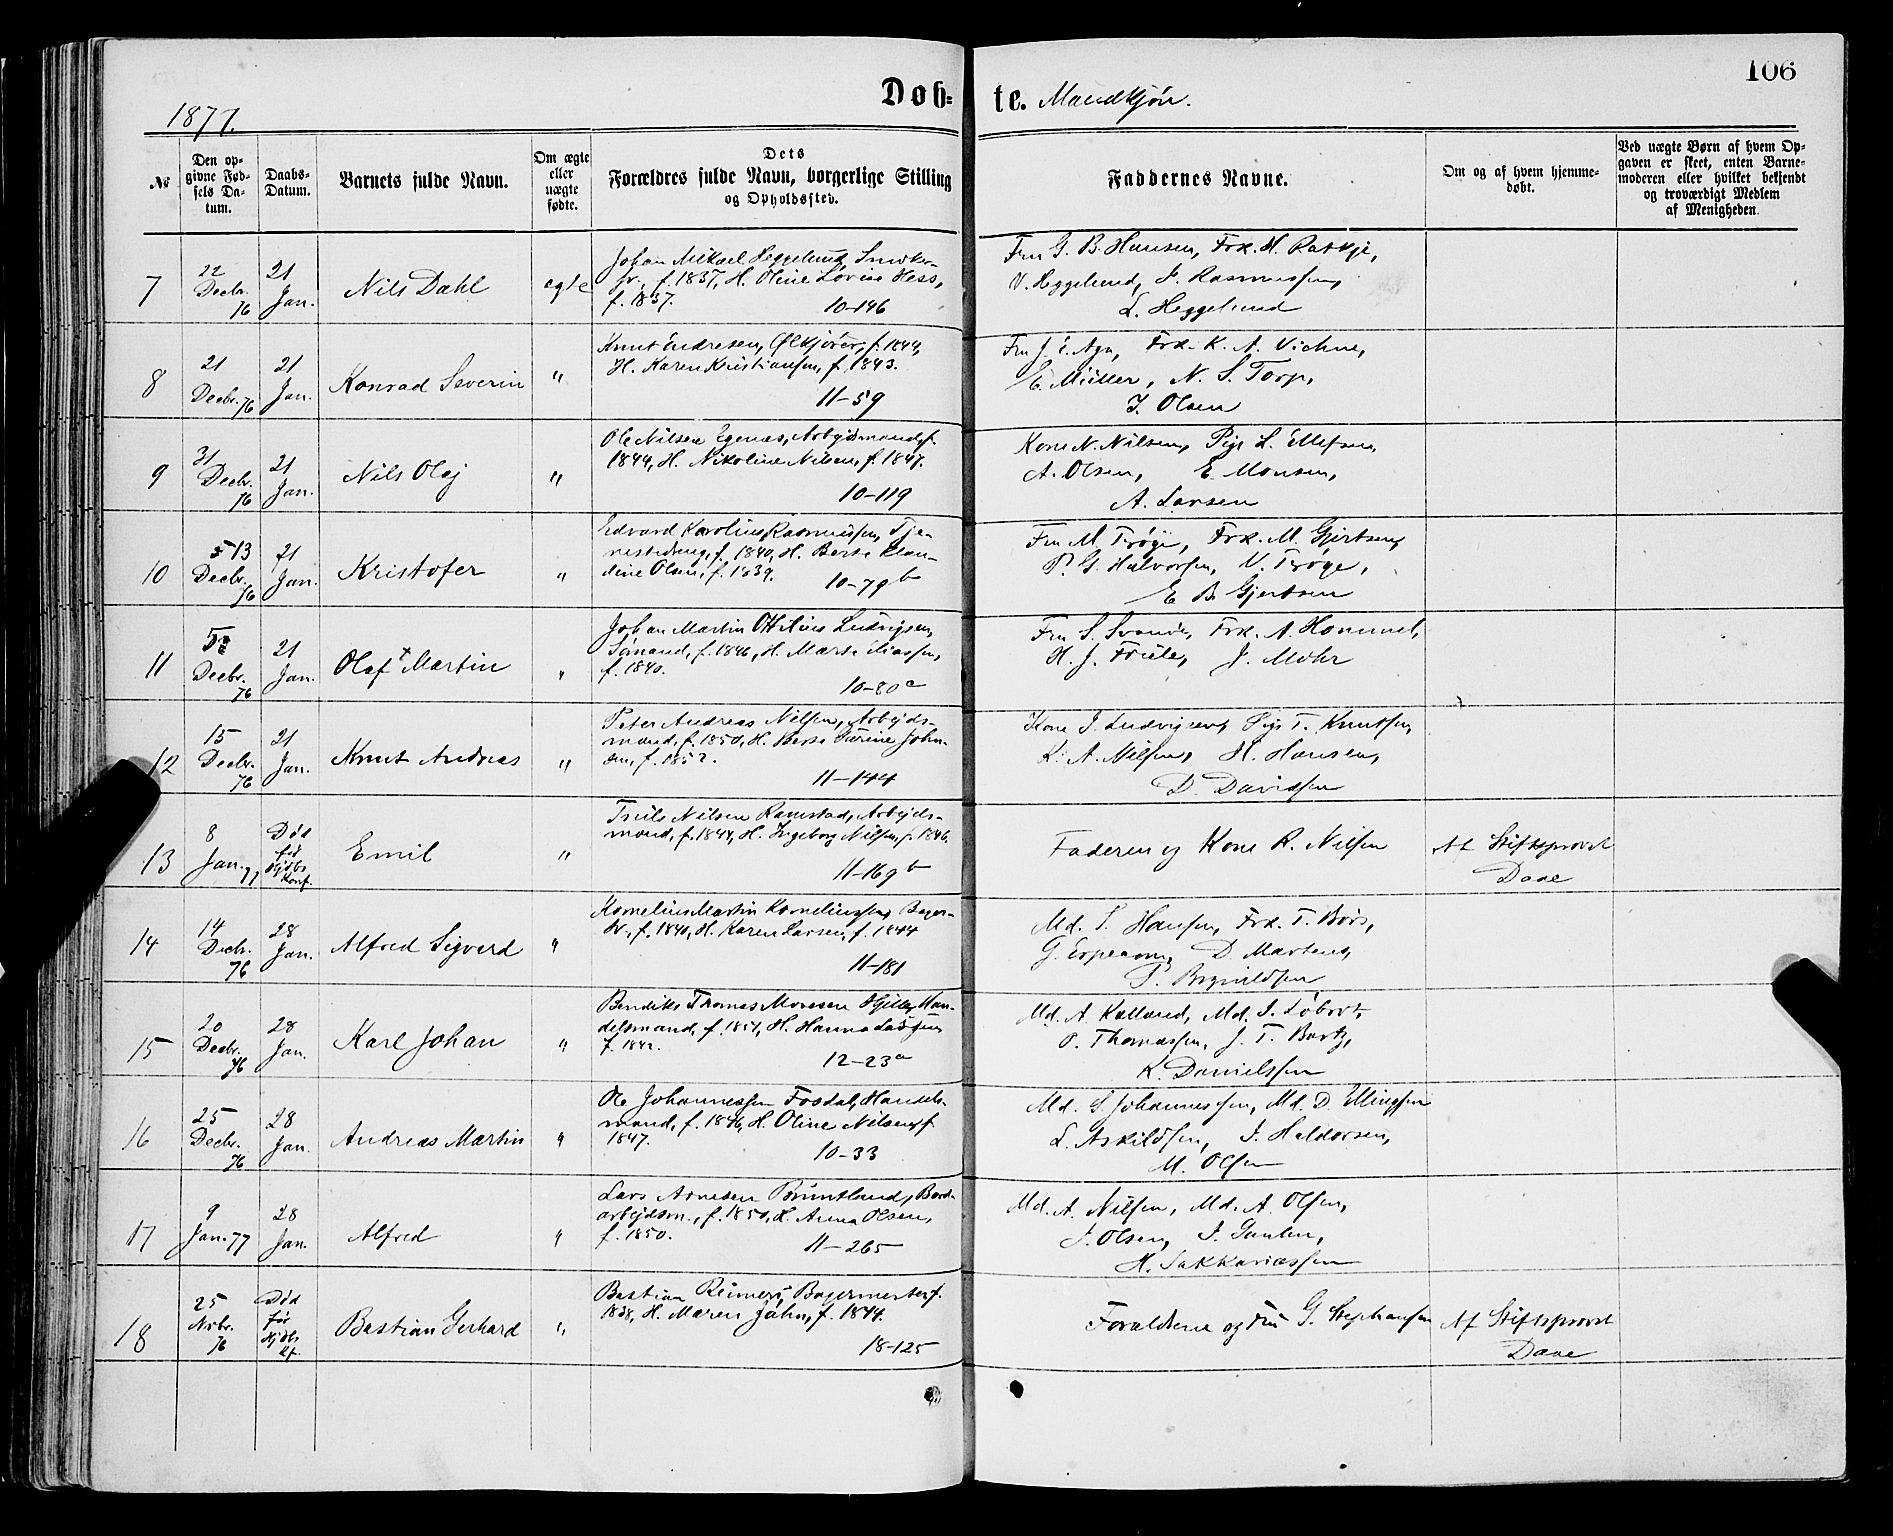 106
Døb= te. Mandkjøn.
1877.
№
Den op-
givne Fød-
sels Da-
tum.
Daabs-
Datum.
Barnets fulde Navn.
Om ægte
eller
uægte
fødte.
Dets
Forældres fulde Navn, borgerlige Stilling
og Opholdssted.
Faddernes Navne.
Om og af hvem hjemme-
døbt.
Ved uægte Børn af hvem Op-
gaven er skeet, enten Barne-
moderen eller hvilket bekjendt
og troværdigt Medlem
af Menigheden.
7
22
Decbr.
76
21
Jan.
Nils Dahl
egte
Johan Mikael Heggelund, Snedker-
f. 1837, H. Oline Lovise Hess,
f. 1837.
10-146
Fru G. B. Hansen, Frk. H. Raskje,
V. Heggelund, F. Rasmussen,
L. Heggelund
8
21
Decbr. 76
21
Jan.
Konrad Severin
"
Knut Endresen, Ølkjører, f. 1844,
H. Karen Kristiansen, f. 1843.
11-59
Fru J. E. Frk. K. A.
E. Müller, N. S. Torp,
J. Olsen
9
31
Decbr.
76
21
Jan.
Nils Olaj
"
Ole Nilsen Egenæs, Arbejdsmand, f.
1844, H. Nikoline Nilsen, f. 1847.
10-119
Kone N. Nilsen, Pige L. Ellefsen,
A. Olsen, E. Monsen,
A. Larsen
10
5 13
Decbr.
76
21
Jan.
Kristofer
"
Edvard Karolius Rasmussen, Tje-
nestedreng, f. 1840, H. Berte Clau-
dine Olsen, f. 1839.
10-79 b
Fru M. Trøge, Frk. M. Gjertsen,
P. G. Halvorsen, V. Trøge,
E. B. Gjertsen
11
Decbr.
76
21
Jan.
Olaf Martin
"
Johan Martin Ottilius Ludvigsen,
Sømand, f. 1846, H. Marte Eliassen,
f. 1840.
10-80 a
Fru S. Frk. A. Hammel,
H. J. Friele, J. Mohr
12
15
Decbr.
76
21
Jan.
Knut Andreas
"
Peter Andreas Nilsen, Arbejds-
mand, f. 1850, H. Berte Karine John-
sen, f. 1852.
11-144
Kone J. Ludvigsen, Pige T. Knutsen,
K. A. Nilsen, H. Hansen,
D. Davidsen
13
8
Jan. 77
Død
før
Hjdbs
Konf.
Emil
"
Truls Nilsen Ramstad, Arbejds-
mand, f. 1844, H. Ingeborg Nilsen, f. 1846.
11-169 b
Faderen og Kone R. Nilsen
Af Stiftsprovst
Daae
14
14
Decbr.
76
28
Jan.
Alfred Sigverd
"
Kornelius Martin Korneliussen, Bager-
sv., f. 1840, H. Karen Larsen, f. 1844
11-181
Md. S. Hansen, Frk. T. Børs,
G. D. Martens,
P. Brynildsen
15
20
Decbr.
76
28
Jan.
Karl Johan
"
Bendiks Thomas Monsen Hjelle, Han-
delsmand, f. 1851, H. Hanna
f. 1842.
12-23 a
Md. A. Kalland, Md. I.
P. Thomassen, J. T. Bartz,
K. Danielssen
16
25
Decbr.
76
28
Jan.
Andreas Martin
"
Ole Johannessen Fosdal, Handels-
mand, f. 1846, H. Oline Nilsen, f.
1847.
10-33
Md. S. Johannessen, Md. D. Ellingsen
L. Askildsen, I. Haldorsen,
M. Olsen
17
9
Jan. 77
28
Jan.
Alfred
"
Lars Arnesen Brimtland, Bord-
arbejdsm., f. 1850, H. Anna Olsen,
f. 1850.
11-265
Md. A. Nilsen, Md. A. Olsen,
J. Olsen,
H. Sakkariassen
18
25
Novbr.
76
Død
før
Hjdbs
Kf.
Bastian Gerhard
"
Bastian Reimers, Bagermester, f.
1838, H. Maren Jahn, f. 1844.
18-125
Forældrene og Fru G. Stephansen
Af Stiftsprovst
Daae